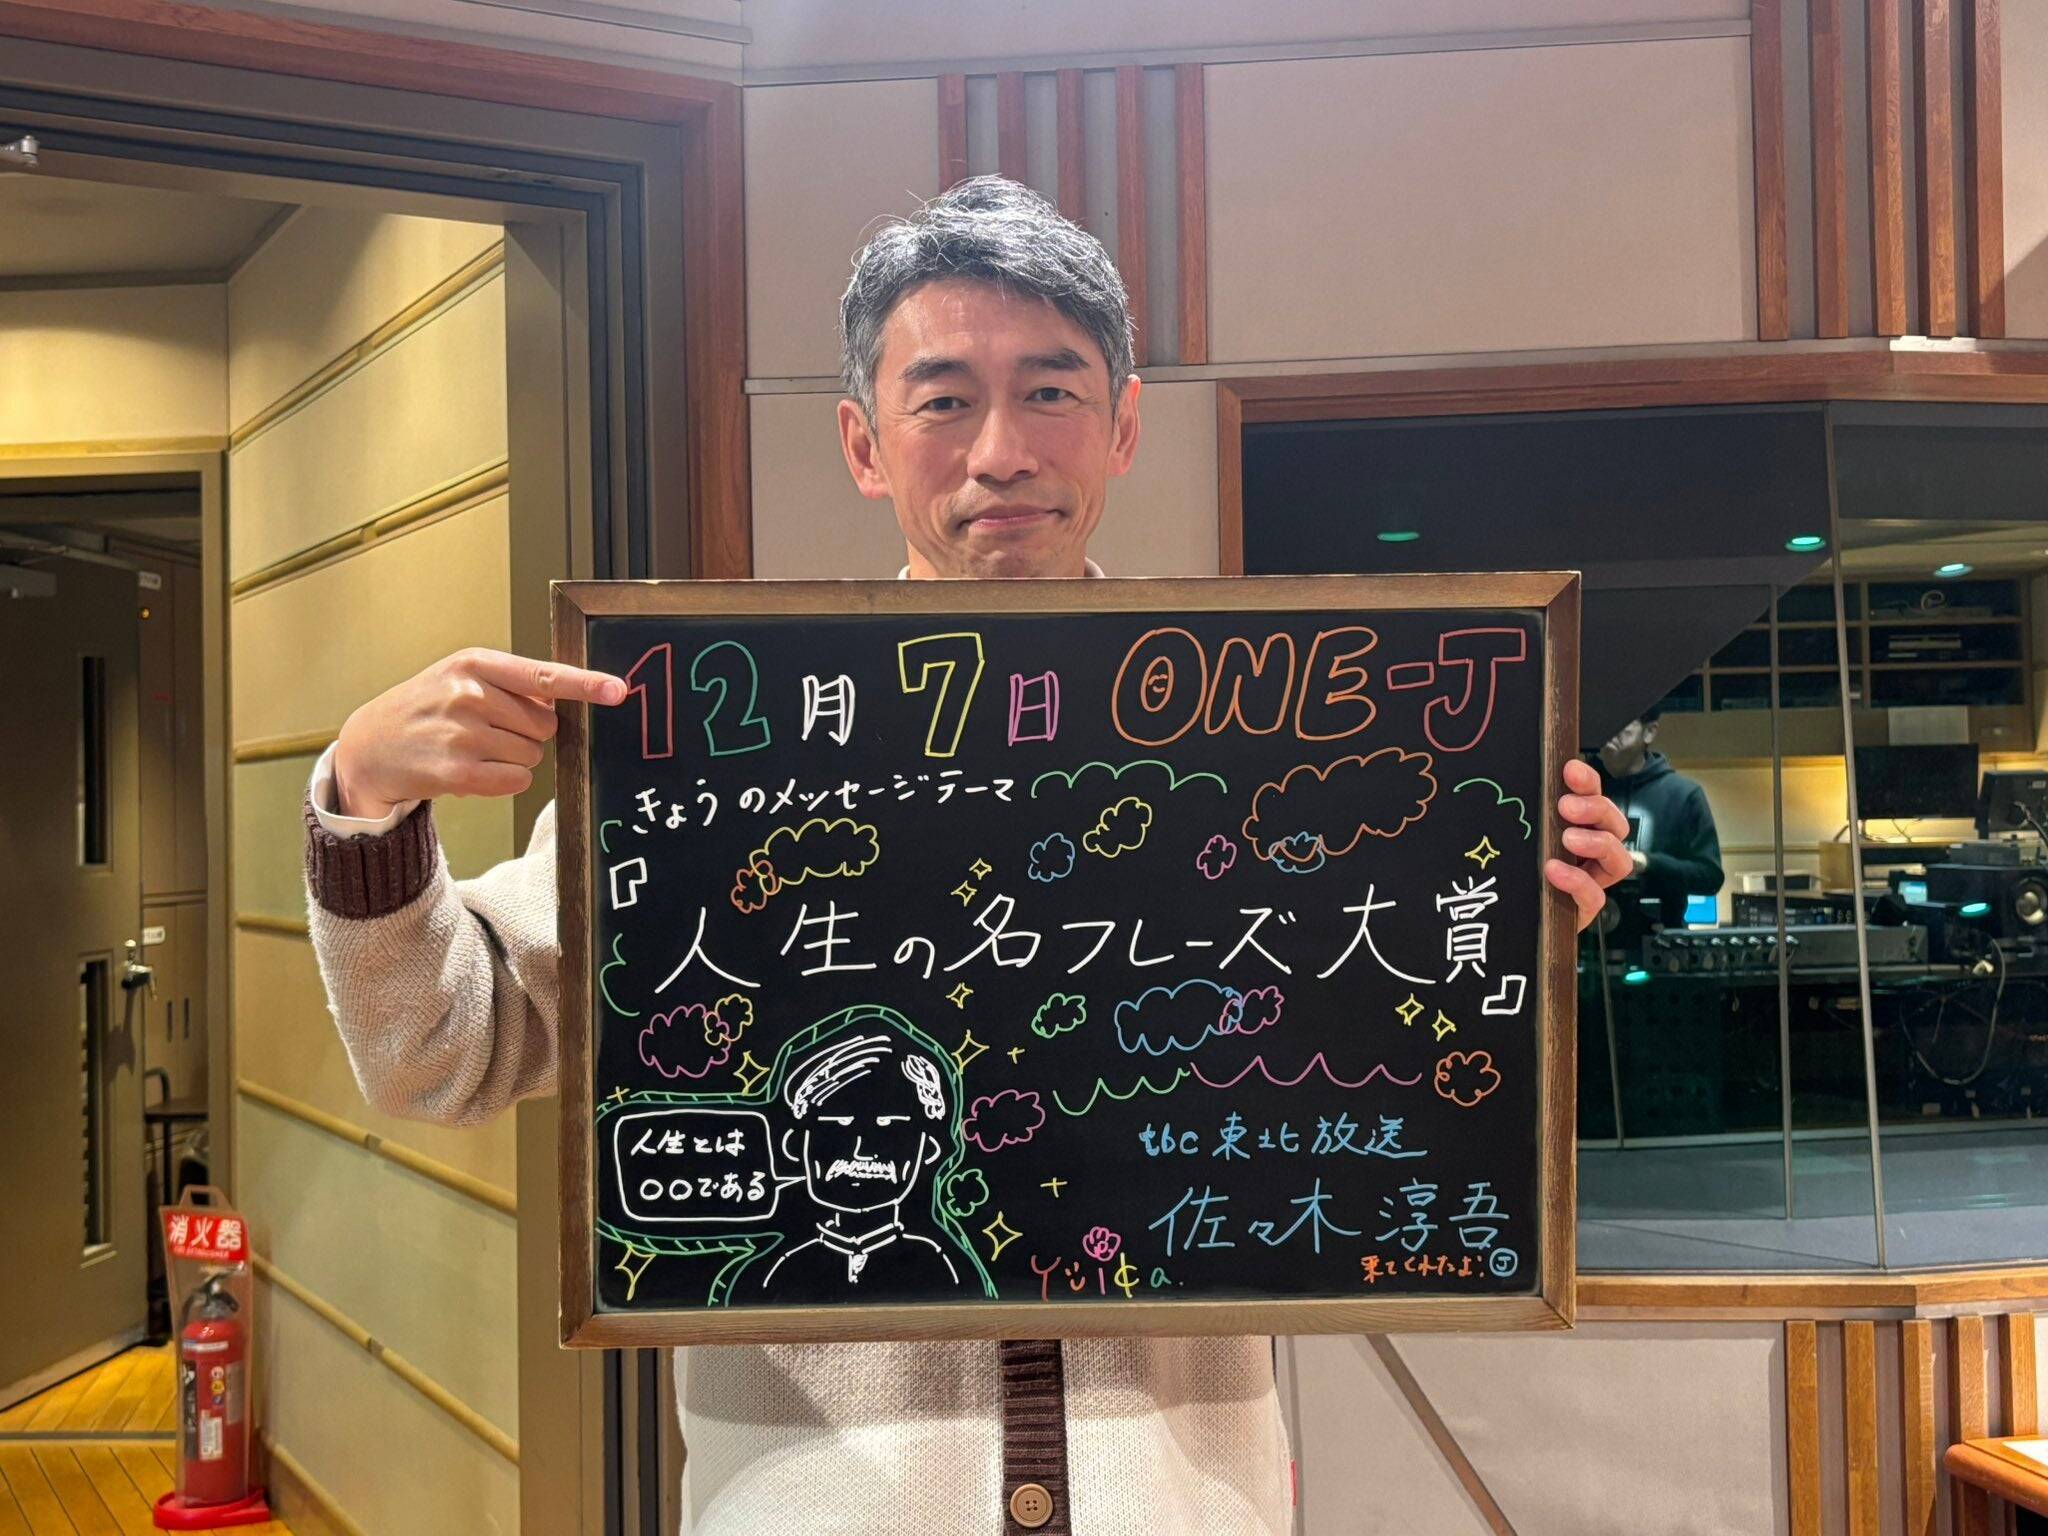 12月7日 ONE-J
きょうのメッセージテーマ
『人生の名フレーズ大賞』
人生とは
○○である
tbc東北放送
佐々木淳吾
来てくれたよ! J
Yuika.
消火器